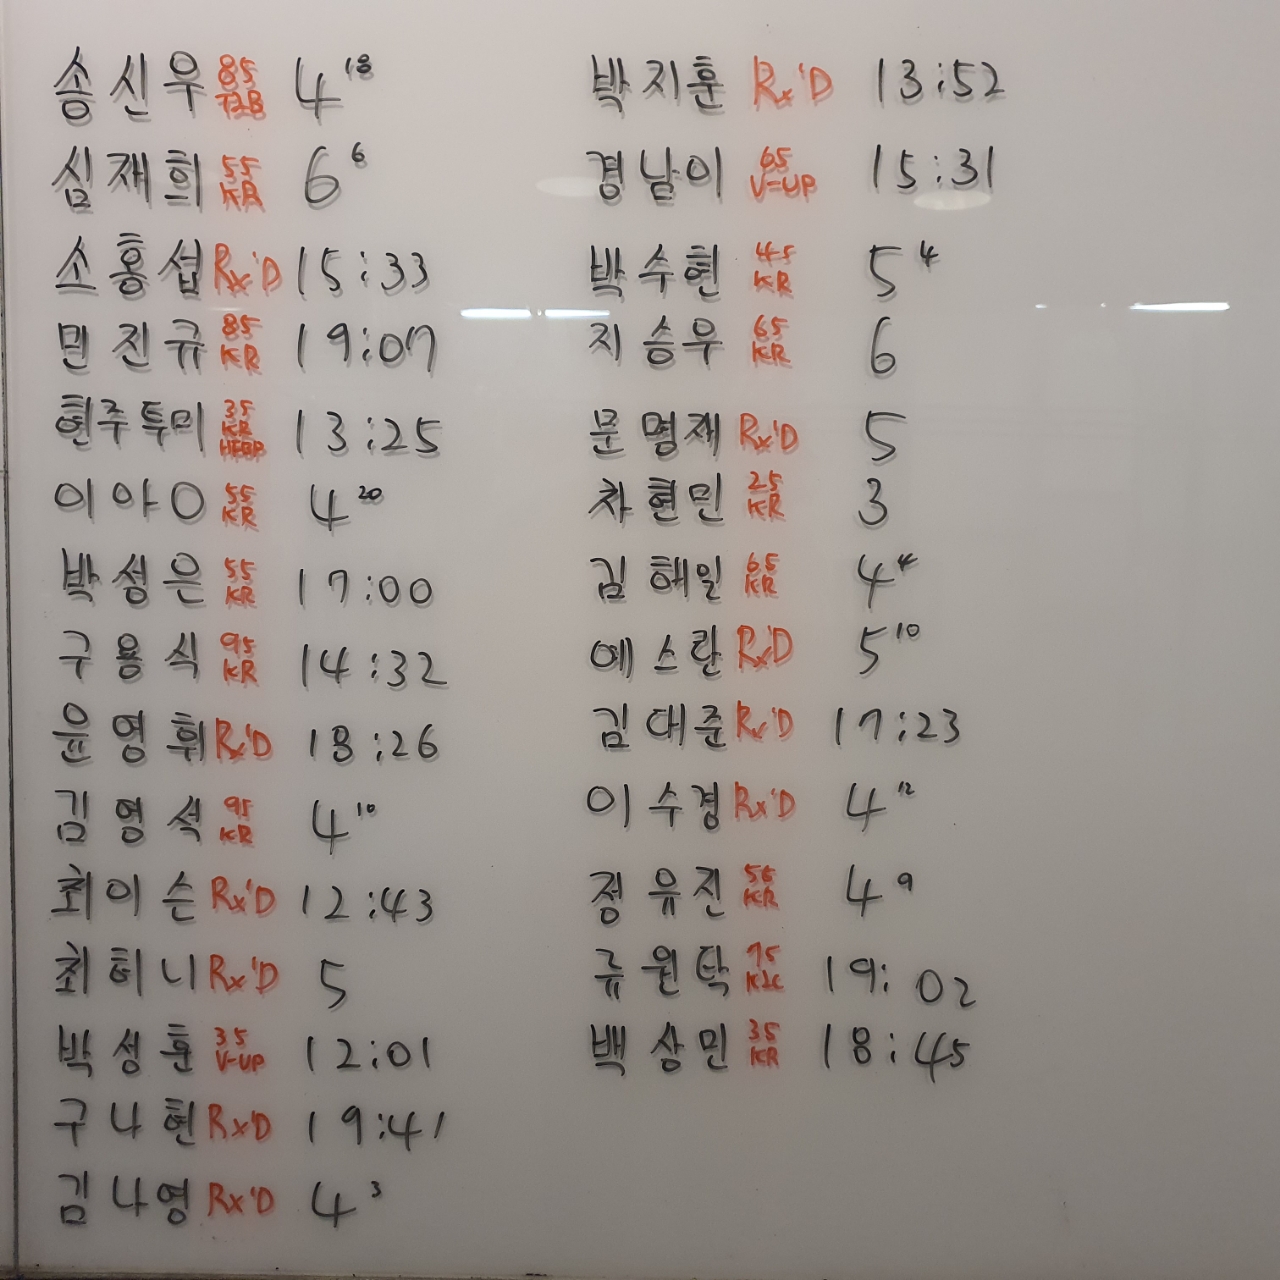 송신우 85 T2B 4 18
심재희 55 KR 6 6
소홍섭 Rx'D 15:33
민진규 85 KR 19:07
현주투미 35 KR 13:25
이아О 55 KR 4 20
박성은 55 KR 17:00
구용식 95 KR 14:32
윤영휘 Rx'D 18:26
김영석 95 KR 4 10
최이슨 Rx'D 12:43
최허니 Rx'D 5
박성훈 35 V-UP 12:01
구나현 Rx'D 19:41
김나영 Rx'D 4 3
박지훈 Rx'D 13:52
경남이 65 V-UP 15:31
박수현 45 KR 5 4
지승우 65 KR 6
문명재 Rx'D 5
차현민 25 KR 3
김해일 65 KR 4 4
에스란 Rx'D 5 10
김대준 Rx'D 17:23
이수경 Rx'D 4 12
정유진 KR 4 9
류원탁 75 19:02
백상민 35 KR 18:45